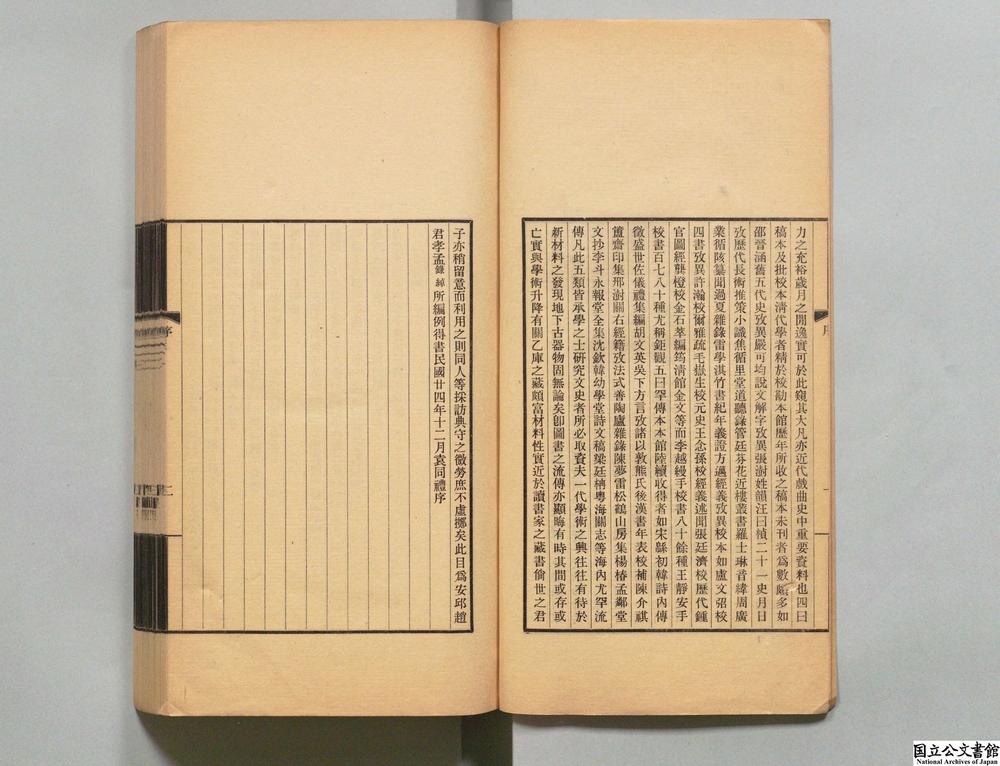 力之充裕歲月之閒逸實可於此窺其大凡亦近代戲曲史中重要資料也四曰
稿本及批校本清代學者精於校勘本館歷年所收之稿本未刊者為數頗多如
邵晉涵舊五代史攷異嚴可均說文解字攷異張澍姓韻汪曰楨二十一史月日
攷歷代長術推策小識焦循里堂道聽錄管廷芬花近樓叢書羅士琳晉緯周廣
業循陔纂聞過夏雜錄雷學淇竹書紀年義證方邁經義攷異校本如盧文弨校
四書攷異許瀚校爾雅疏毛嶽生校元史王念孫校經義述聞張廷濟校歷代鍾
官圖經龔橙校金石萃編筠清館金文等而李越縵手校書八十餘種王靜安手
校書百七八十種尤稱鉅觀五曰罕傳本本館陸續收得者如宋緜初韓詩內傳
徵盛世佐儀禮集編胡文英吳下方言攷諸以敦熊氏後漢書年表校補陳介祺
簠齋印集邢澍關右經籍攷法式善陶廬雜錄陳夢雷松鶴山房集楊椿孟鄰堂
文抄李斗永報堂全集沈欽韓幼學堂詩文稿梁廷枏粵海關志等海內尤罕流
傳凡此五類皆承學之士研究文史者所必取資夫一代學術之興往往有待於
新材料之發現地下古器物固無論矣卽圖書之流傳亦顯晦有時其間或存或
亡實與學術升降有關乙庫之藏頗富材料性實近於讀書家之藏書倘世之君
序
子亦稍留意而利用之則同人等採訪典守之微勞庶不虛擲矣此目為安邱趙
君孝孟錄綽所編例得書民國廿四年十二月袁同禮序
序
国立公文書館
National Archives of Japan